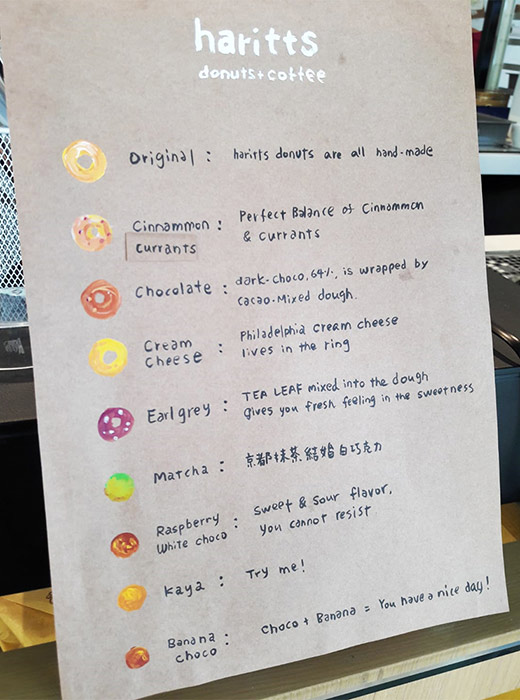 haritts
donuts+coffee
Original : haritts donuts are all hand-made
Cinnammon : Perfect Balance of Cinnammon
currants & currants
Chocolate : dark-choco.64%, is wrapped by
cacao-Mixed dough.
Cream : Philadelphia cream cheese
cheese lives in the ring
Earlgrey : TEA LEAF mixed into the dough
gives you fresh feeling in the sweetness
Matcha : 京都抹茶結始白巧克力
Raspberry : Sweet & Sour flavor,
White choco you cannot resist
Kaya : Try me!
Banana : Choco + Banana = You have a nice day!
choco